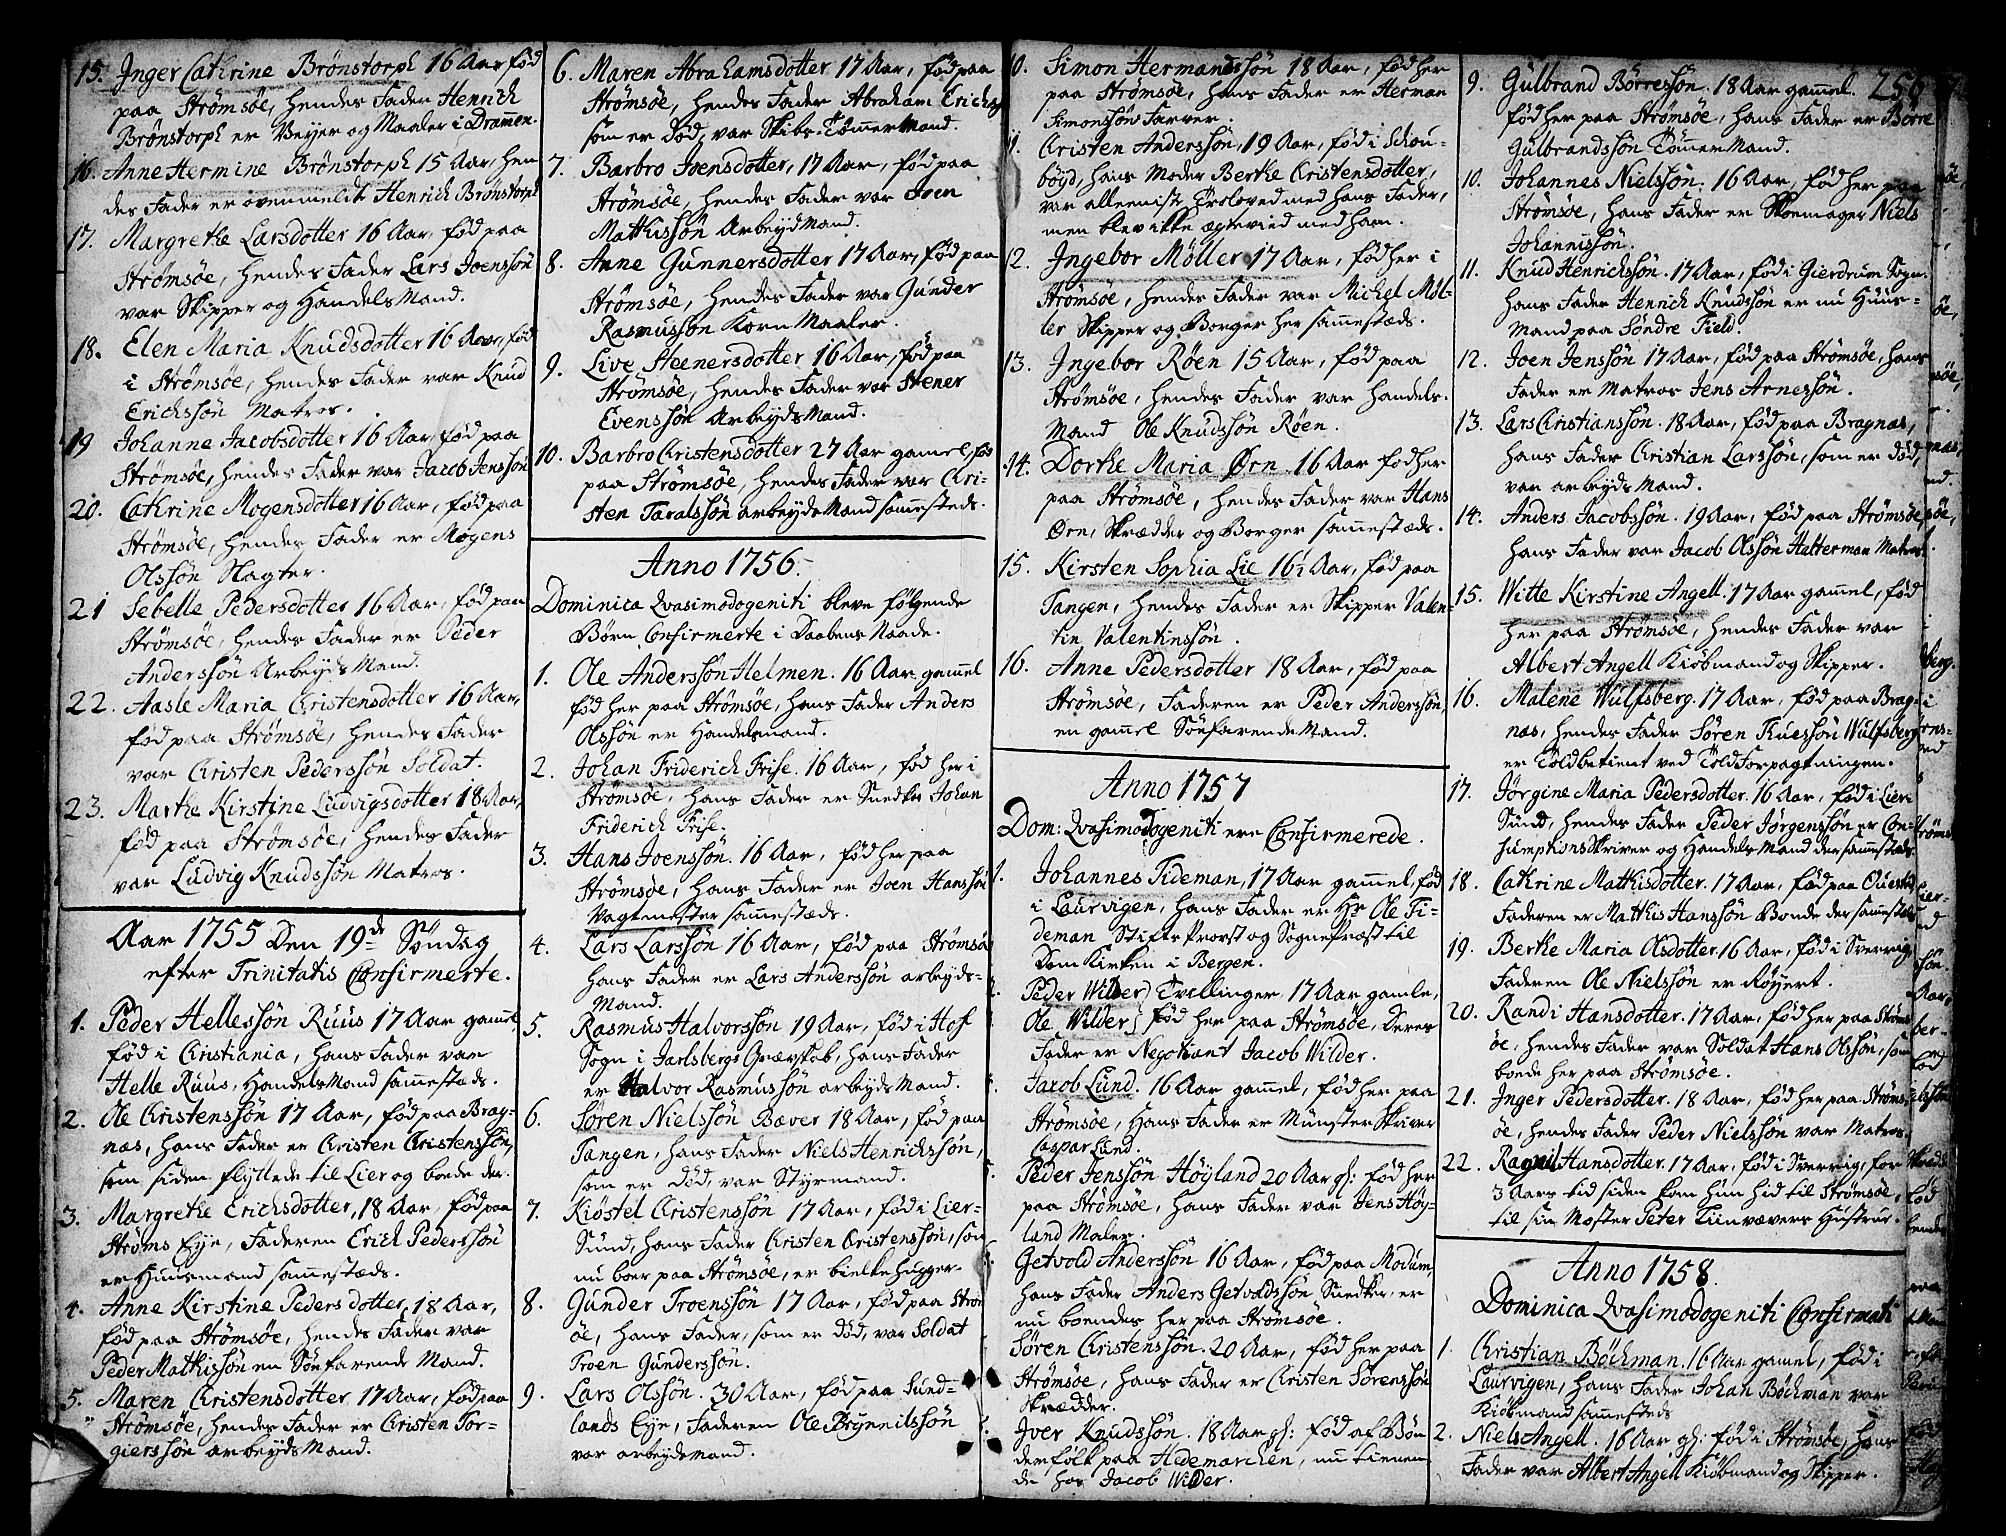 15. Inger Cathrine Brönstorph 16 Aar fød
paa Strömsöe, hendes Fader Henrich
Brönstorph er Veyer og Maaler i Drammen.
16. Anne Hermine Brönstorph 15 Aar, hen
des Fader er ovenmeldte Henrich Brönstorph
17. Margrethe Larsdotter 16 Aar, fød paa
Strömsöe, hendes Fader Lars Joenssön
var Skipper og Handels Mand.
18. Elen Maria Knudsdotter 16 Aar, fød
i Strömsöe, hendes Fader var Knud
Erichssön Matros.
19 Johanne Jacobsdotter 16 Aar, fød paa
Strömsöe, hendes Fader var Jacob Jenssön
20. Cathrine Mogensdotter 16 Aar, fød paa
Strömsöe, hendes Fader er Mogens
Olssön Slagter.
21 Sebelle Pedersdotter 16 Aar, fød paa
Strömsöe, hendes Fader er Peder
Anderssön Arbeyds Mand.
22. Aasle Maria Christensdotter 16 Aar,
fød paa Strömsöe, hendes Fader
var Christen Pederssön Soldat.
23. Marthe Kirstine Ludvigsdotter 18 Aar,
fød paa Strömsöe, hendes Fader
var Ludvig Knudssön Matros.
Aar 1755 Den 19de Söndag
efter Trinitatis Confirmerte.
1. Peder Hellessön Ruus 17 Aar gamel
fød i Christiania, hans Fader var
Helle Ruus, Handels Mand sammestæds.
2. Ole Christenssön 17 Aar, fød paa Brag-
næs, hans Fader er Christen Christenssön,
som siden flyttede til Lier og boede der.
3. Margrethe Erichsdotter, 18 Aar, fød paa
Ströms Eye, Faderen Erich Pederssön
er Huusmand sammestæds.
4. Anne Kirstine Pedersdotter, 18 Aar,
fød paa Strömsöe, hendes Fader var
Peder Mathissön en Söefarende Mand.
5. Maren Christensdotter 17 Aar, fød paa
Strömsöe, hendes Fader er Christen Tor-
gierssön arbeyds Mand.
6. Maren Abrahamsdotter 17 Aar, fød paa
Strömsöe, hendes Fader Abraham Erichs
som er død, var Skibs-Tömmer Mand.
7. Barbro Joensdotter, 17 Aar, fød paa
Strömsöe, hendes Fader var Joen
Mathissön Arbeyd Mand.
8. Anne Gunnersdotter 17 Aar, fød paa
Strömsöe, hendes Fader var Gunder
Rasmussön Korn Maaler.
9. Live Steenersdotter 16 Aar, fød paa
Strömsöe, hendes Fader var Stener
Evenssön Arbeyds Mand.
10. Barbro Christensdotter 27 Aar gamel, fød
paa Strömsöe, hendes Fader var Chri-
sten Taralssön arbeyds Mand sammesteds.
Anno 1756.
Dominica Qvasimodogeniti bleve følgende
Børn Confirmerte i Daabens Naade.
1. Ole Anderssön Helmen. 16 Aar gammel
fød her paa Strömsöe, hans Fader Anders
Olssön er Handelsmand.
2. Johan Friderich Frise. 16 Aar, fød her i
Strömsöe, hans Fader er Snedker Johan
Friderich Frise.
3. Hans Joenssön. 16 Aar, fød her paa
Strömsöe, hans Fader er Joen Hanssön
Vagtmester sammestæds.
4. Lars Larssön 16 Aar, fød paa Strömsöe
hans Fader er Lars Anderssön arbeyds-
Mand.
5. Rasmus Halvorssön 19 Aar, fød i Hof
Sogn i Jarlsbergs Grævskab, hans Fader
er Halvor Rasmussön arbeyds Mand.
6. Sören Nielssön Bæver 18 Aar, fød paa
Tangen, hans Fader Niels Henrichssön,
som er død, var Styrmand.
7. Kiöstel Christenssön 17 Aar, fød i Lier-
Sund, hans Fader Christen Christenssön, som
nu boer paa Strömsöe, er bielkehugger.
8. Gunder Troenssön 17 Aar, fød paa Ström
öe, hans Fader, som er død, var Soldat
Troen Gunderssön.
9. Lars Olssön. 30 Aar, fød paa Sund-
lands Eye, Faderen Ole Brynnilssön
var arbeydsmand.
10. Simon Hermandssön 18 Aar, fød her
paa Strömsöe, hans Fader er Herman
Simonssön Farver.
11. Christen Anderssön, 19 Aar, fød i Schou-
böyd, hans Moder Berthe Christensdotter,
var alleeniste Troloved med hans Fader,
men blev ikke ægteviet med ham.
12. Ingebor Möller 17 Aar, fød her i
Strömsöe, hendes Fader var Michel Möl-
ler Skipper og Borger her sammestæds.
13. Ingebor Röen 15 Aar, fød paa
Strömsöe, hendes Fader var Handels-
Mand Ole Knudssön Röen.
14. Dorthe Maria Ørn. 16 Aar fød her
paa Strömsöe, hendes Fader var Hans
Ørn, Skrædder og Borger sammestæds.
15. Kirsten Sophia Lie 16½ Aar, fød paa
Tangen, hendes Fader er Skipper Valen-
tin Valentinssön.
16. Anne Pedersdotter 18 Aar, fød paa
Strömsöe, Faderen er Peder Anderssön,
en gammel Söefarende Mand.
Anno 1757
Dom: Qvasimodogeniti ere Confirmerede.
1. Johannes Tideman, 17 Aar gammel, fød
i Laurvigen, hans Fader er Hr Ole Ti-
deman Stifts Provst og Sognepræst til
Dom Kirken i Bergen.
Peder Wilder) Tvillinger 17 Aar gamle,
Ole Wilder) fød her paa Strömsöe, Deres
Fader er Negotiant Jacob Wilder.
Jacob Lund. 16 Aar gammel, fød her paa
Strömsöe, Hans Fader er Mynster Skriver
Caspar Lund.
Peder Jenssön Höyland 20 Aar gl: fød her
paa Strömsöe, hans Fader var Jens Höy-
land Maler.
Getvold Anderssön 16 Aar, fød paa Modum,
hans Fader Anders Getvoldssön Snedker, er
nu boendes her paa Strömsöe.
Sören Christenssön. 20 Aar, fød her paa
Strömsöe, hans Fader er Christen Sörenssön
Skrædder.
Jver Knudssön. 18 Aar gl: fød af Bøn
derfolk paa Hedemarchen, nu tienen
de hos Jacob Wilder.
256
9. Gulbrand Börressön. 18 Aar gammel.
fød her paa Strömsöe, hans Fader er Börre
Gulbrandssön Tömmer Mand.
10. Johannes Nielssön. 16 Aar, fød her paa
Strömsöe, hans Fader er Skoemager Niels
Johannissön.
11. Knud Henrichssön. 17 Aar, fød i Gierdrum Sogn.
hans Fader Henrich Knudssön er nu Huus-
Mand paa Söndre Field.
12. Joen Jenssön 17 Aar, fød paa Strömsöe, hans
Fader er Matros Jens Arnessön.
13. Lars Christianssön. 18 Aar, fød paa Bragnæs,
hans Fader Christian Larssön, som er død,
var arbeyds Mand.
14. Anders Jacobssön. 19 Aar, fød paa Strömsöe,
hans Fader var Jacob Olssön Halterman Matros.
15. Witte Kirstine Angell. 17 Aar gammel, fød
her paa Strömsöe, hendes Fader var
Albert Angell Kiöbmand og Skipper.
16. Malene Wulfsberg. 17 Aar, fød paa Brag-
næs, hendes Fader Sören Tuessön Wulfsberg
er Toldbetient ved Told Forpagtningen.
17. Jörgine Maria Pedersdotter. 16 Aar, fød i Lier
Sund, hendes Fader Peder Jörgenssön er Con-
sumptions Skriver og Handels Mand dersammestæds.
18. Cathrine Mathisdotter. 17 Aar, fød paa
Faderen er Matthis Hanssön Bonde dersammesteds
19. Berthe Maria Olsdotter. 16 Aar, fød i Sverrig,
Faderen Ole Nielssön er Röyert.
20. Randi Hansdotter. 17 Aar, fød her paa Ströms
öe, hendes Fader var Soldat Hans Olssön, som
boede her paa Strömsöe.
21. Inger Pedersdotter. 18 Aar, fød her paa Ströms-
öe, hendes Fader Peder Nielssön var Matros.
22. Ragnil Hansdotter. 17 Aar, fød i Sverrig, for
3 Aars tid siden kom hun hid til Strömsöe,
til sin Moster Peter Liinvævers Hustrue.
Anno 1758.
Dominica Qvasimodogeniti Confirmati
1. Christian Böckman. 16 Aar gamel, fød i
Laurvigen, hans Fader Johan Böckman var
Kiöbmand sammesteds
2. Niels Angell. 16 Aar gl: fød i Strömsöe, hans
Fader var Albert Angell Kiöbmand og Skipper.